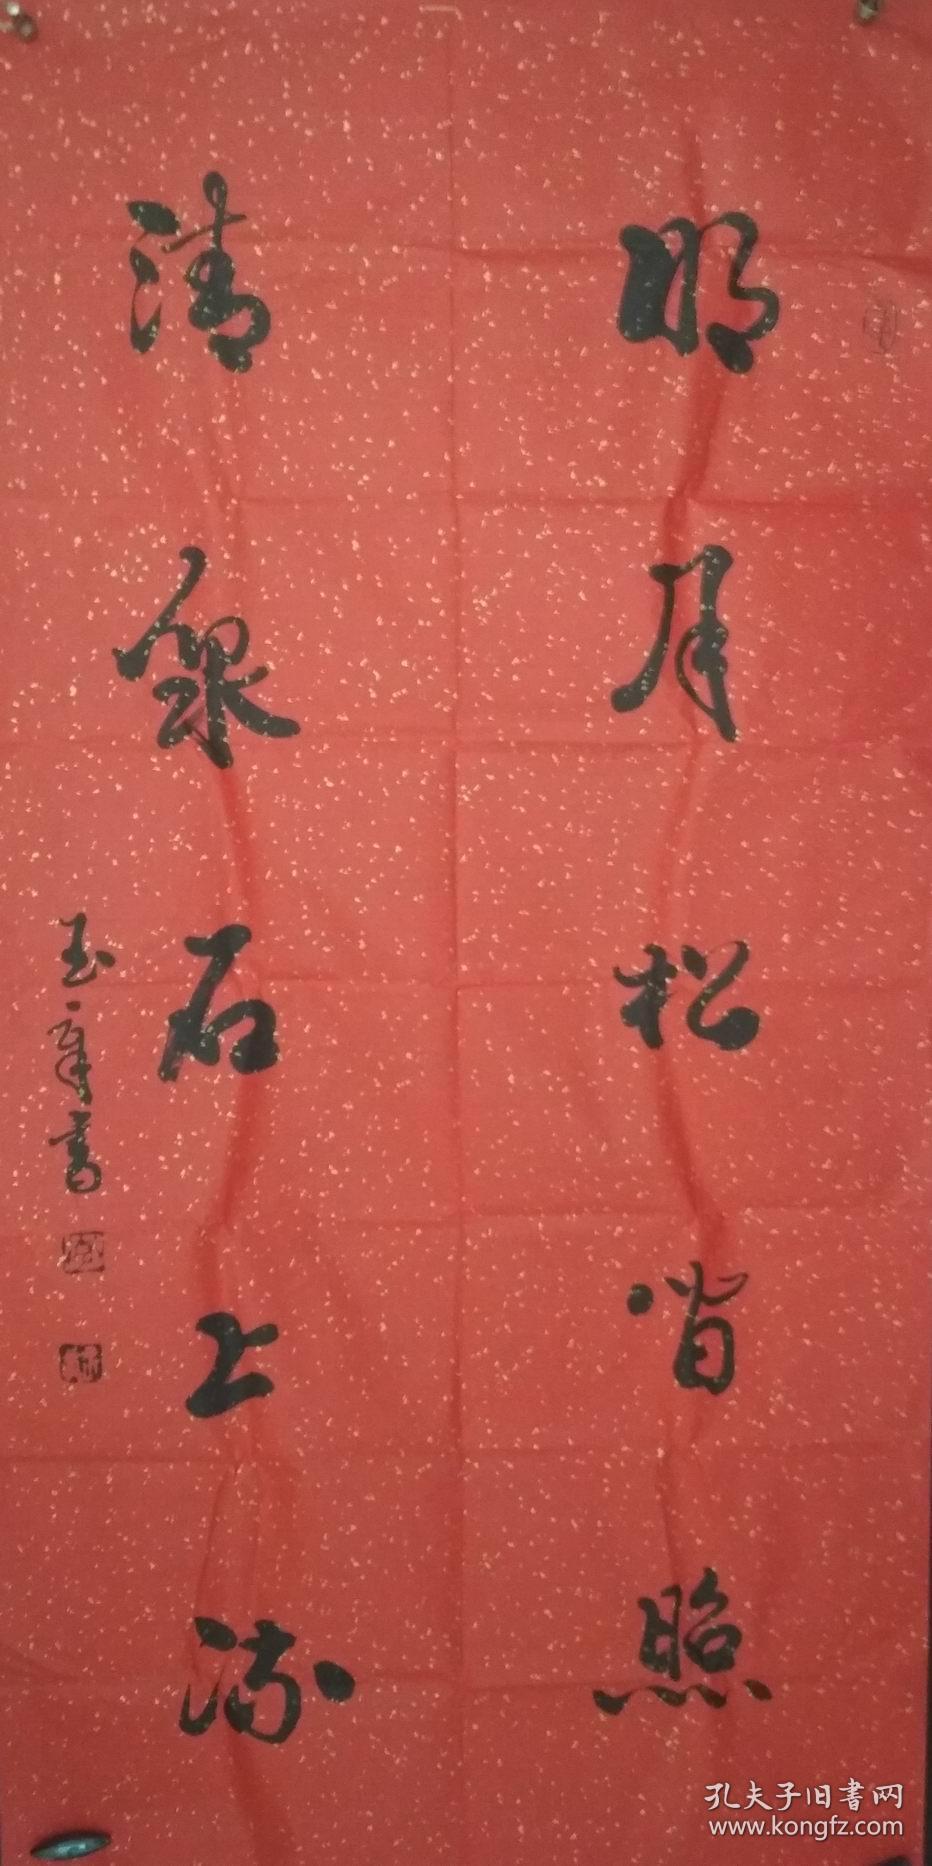 明月松间照
清泉石上流
玉章书
孔夫子旧書网
www.kongfz.com